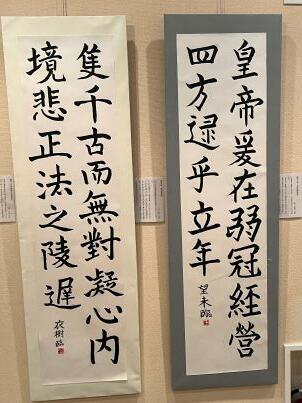 皇帝爰在弱冠經營
四方逮乎立年
望未臨
隻千古而無對凝心内
境悲正法之陵遲
樹臨